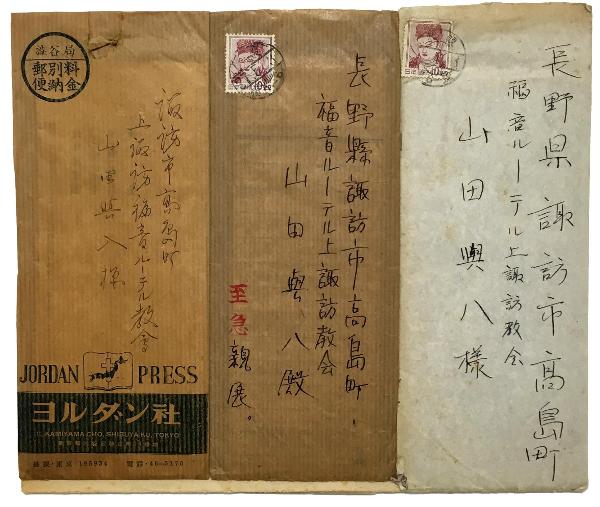 澁谷局
料別郵
金納便
諏訪市高島町
上諏訪福音ルーテル教會
山田興八様
JORDAN PRESS
ヨルダン社
11, KAMIYAMA CHO, SHIBUYA KU, TOKYO
振替・東京 195934 電話・46-5170
長野縣諏訪市高島町・
福音ルーテル上諏訪教会
山田興八殿
至急
親展。
長野県諏訪市高島町
福音ルーテル上諏訪教会
山田興八様